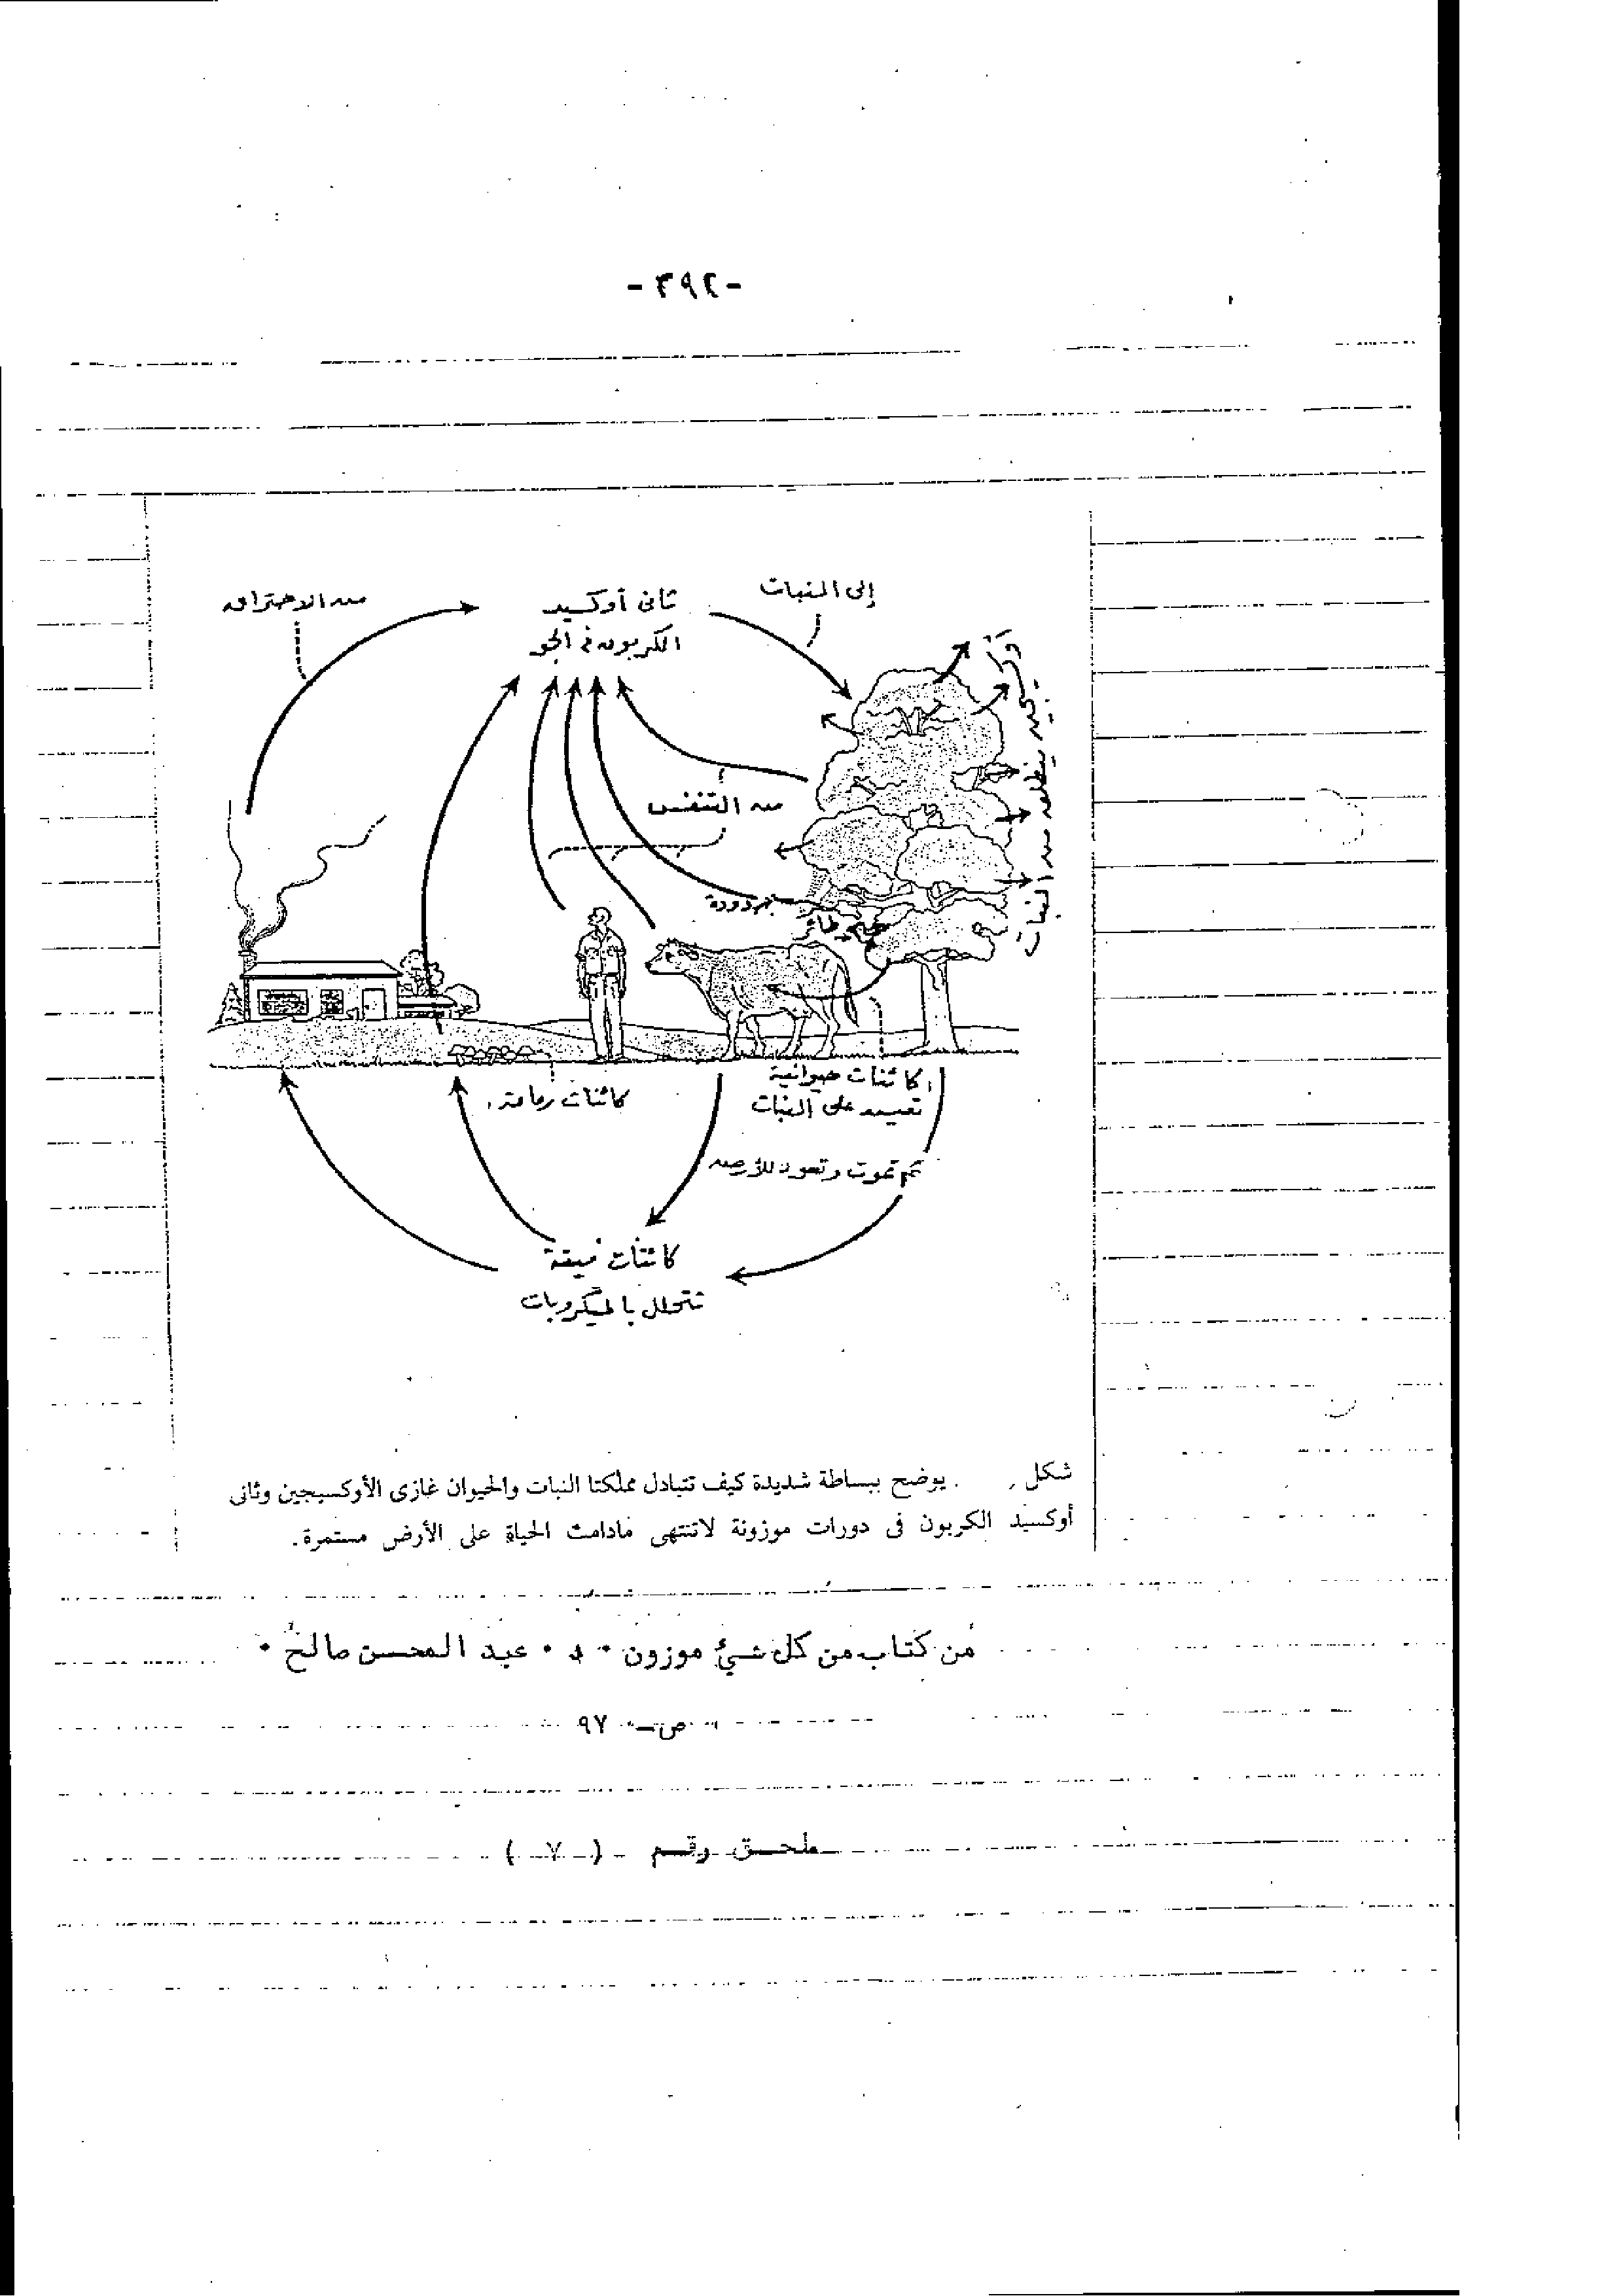 -٣٩٢-
إلى النبات
ثانى أوكسيد
الكربون فى الجو
من الاحتراق
أوكسجين ينطلق من النبات
من التنفس
دودة
طائر
كائنات حيوانية
تعيش على النبات
كائنات رمامة
ثم تموت وتعود للأرض
كائنات ميتة
تتحلل بالميكروبات
شكل . يوضح ببساطة شديدة كيف تتبادل مملكتا النبات والحيوان غازى الأوكسيجين وثانى
أوكسيد الكربون فى دورات موزونة لاتنتهى مادامت الحياة على الأرض مستمرة.
من كتاب من كل شيْ موزون . د . عبد المحسن صالح .
ص ٩٧
ملحق رقم ( ٧ )